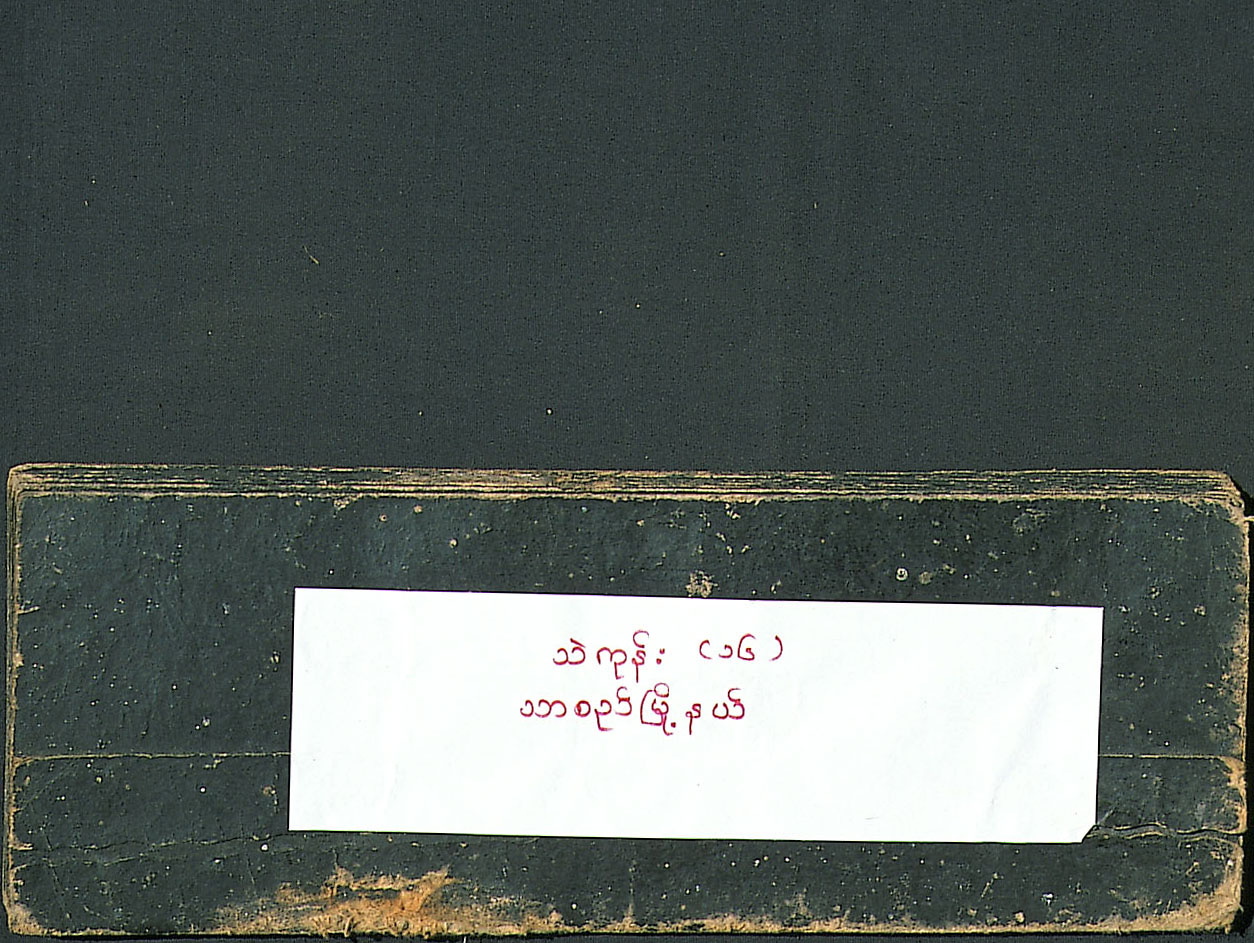 သဲကုန်း (၁၆)
သာစည်မြို့နယ်